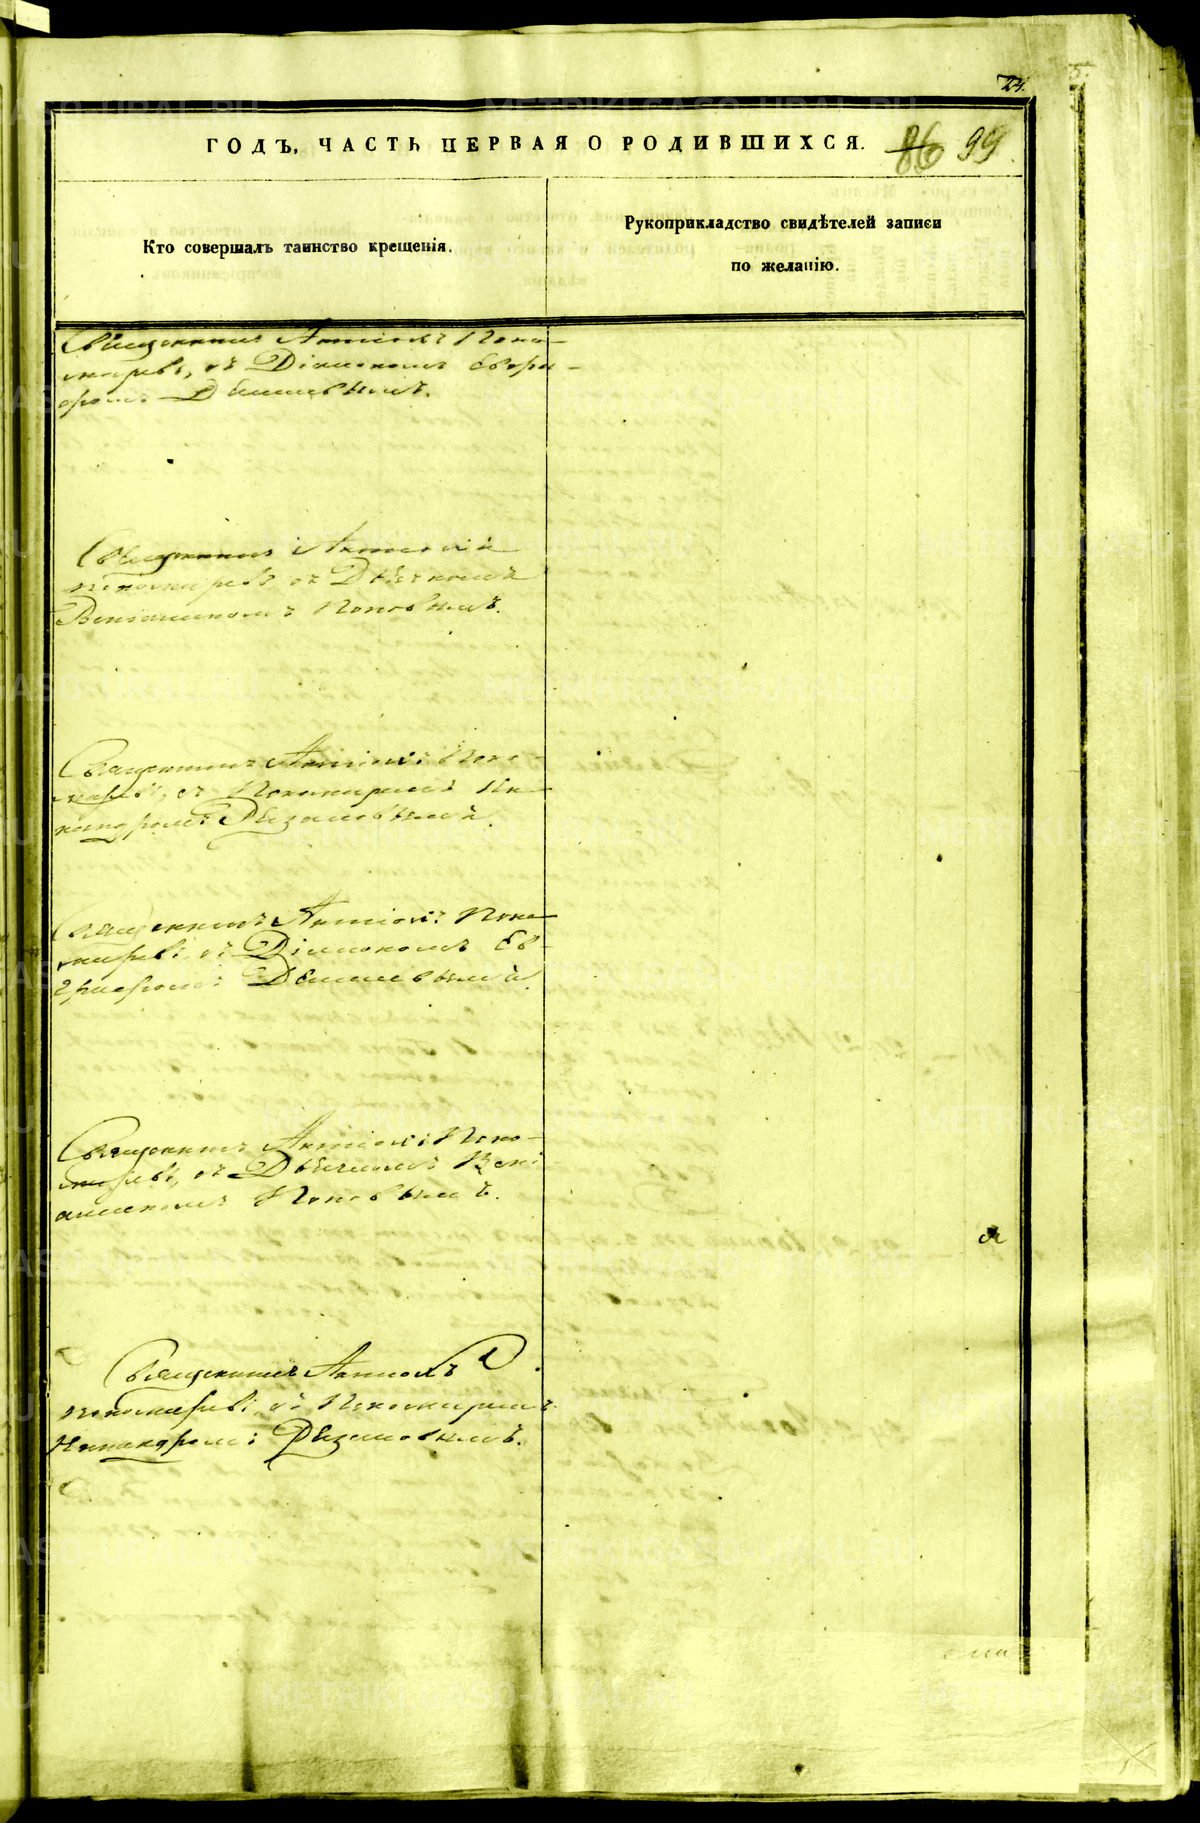 24.
ГОДЪ, ЧАСТЬ ПЕРВАЯ О РОДИВШИХСЯ. 86 99.
Кто совершалъ таинство крещенія.
Рукоприкладство свидѣтелей записи
по желанію.
Священникъ Антіохъ Поно-
маревъ, съ Діакономъ Евгра-
фомъ
Священникъ
Пономаревъ, съ Дьячкомъ
Веніаминомъ Поповымъ.
Священникъ Антіохъ Поно-
маревъ, съ Пономаремъ Ни-
каноромъ
Священникъ Антіохъ Поно-
маревъ, съ Діакономъ Ев-
графомъ
Священникъ Антіохъ Поно-
маревъ, съ Дьячкомъ Вені-
аминомъ Поповымъ.
Священникъ Антіохъ
Пономаревъ, съ Пономаремъ
Никаноромъ
METRIKI.GASO-URAL.RU